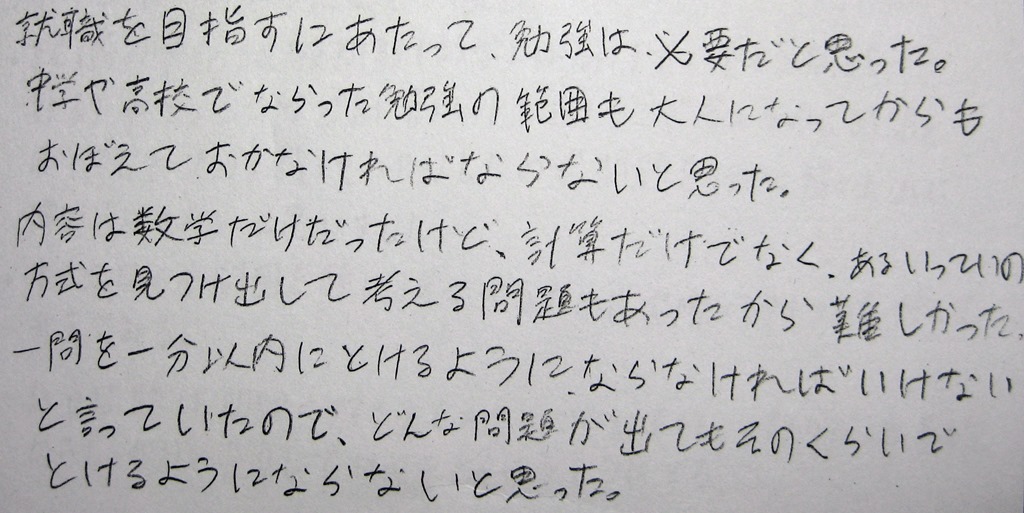 就職を目指すにあたって、勉強は、必要だと思った。
中学や高校でならった勉強の範囲も大人になってからも
おぼえておかなければならないと思った。
内容は数学だけだったけど、計算だけでなく、あるいっていの
方式を見つけ出して考える問題もあったから難しかった。
一問を一分以内にとけるように、ならなければいけない
と言っていたので、どんな問題が出てもそのくらいで
とけるようにならないと思った。